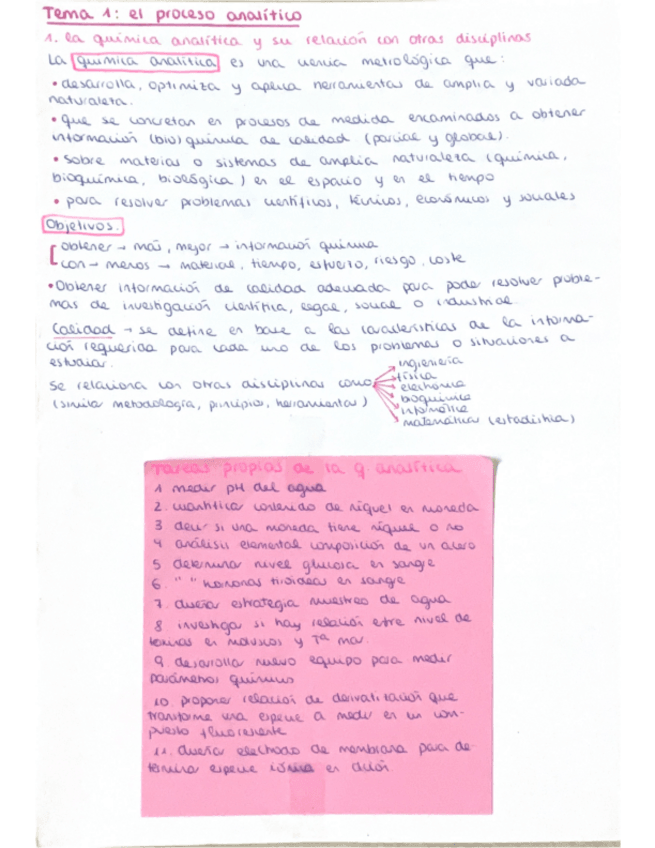 Tema 1: el proceso analítico
1. la química analítica y su relación con otras disciplinas
La química analítica es una ciencia metrológica que:
• desarrolla, optimiza y aplica herramientas de amplia y variada
naturaleza.
• que se concretan en procesos de medida encaminados a obtener
información (bio)química de calidad. (parcial y global).
• sobre materias o sistemas de amplia naturaleza (química,
bioquímica, biológica) en el espacio y en el tiempo
• para resolver problemas científicos, técnicos, económicos y sociales
Objetivos.
obtener → más, mejor → información química
con → menos → material, tiempo, esfuerzo, riesgo, coste
• Obtener información de calidad adecuada para poder resolver proble-
mas de investigación científica, legal, social o industrial.
Calidad → se define en base a las características de la informa-
ción requerida para cada uno de los problemas o situaciones a
estudiar.
Se relaciona con otras disciplinas como
(similar metodología, principios, herramientas)
ingeniería
física
electrónica
bioquímica
informática
matemática (estadística)
Tareas propias de la q. analítica
1 medir pH del agua
2. cuantifica contenido de níquel en moneda
3 decir si una moneda tiene níquel o no
4 análisis elemental composición de un acero
5 determina nivel glucosa en sangre
6. " " hormonas tiroideas en sangre
7. diseña estrategia muestreo de agua
8 investigar si hay relación entre nivel de
toxinas en moluscos y Tª mar.
9. desarrolla nuevo equipo para medir
parámetros químicos
10. proponer relación de derivatización que
transforme una especie a medir en un com-
puesto fluorescente
11. diseñar electrodo de membrana para de-
termina especie iónica en disol.